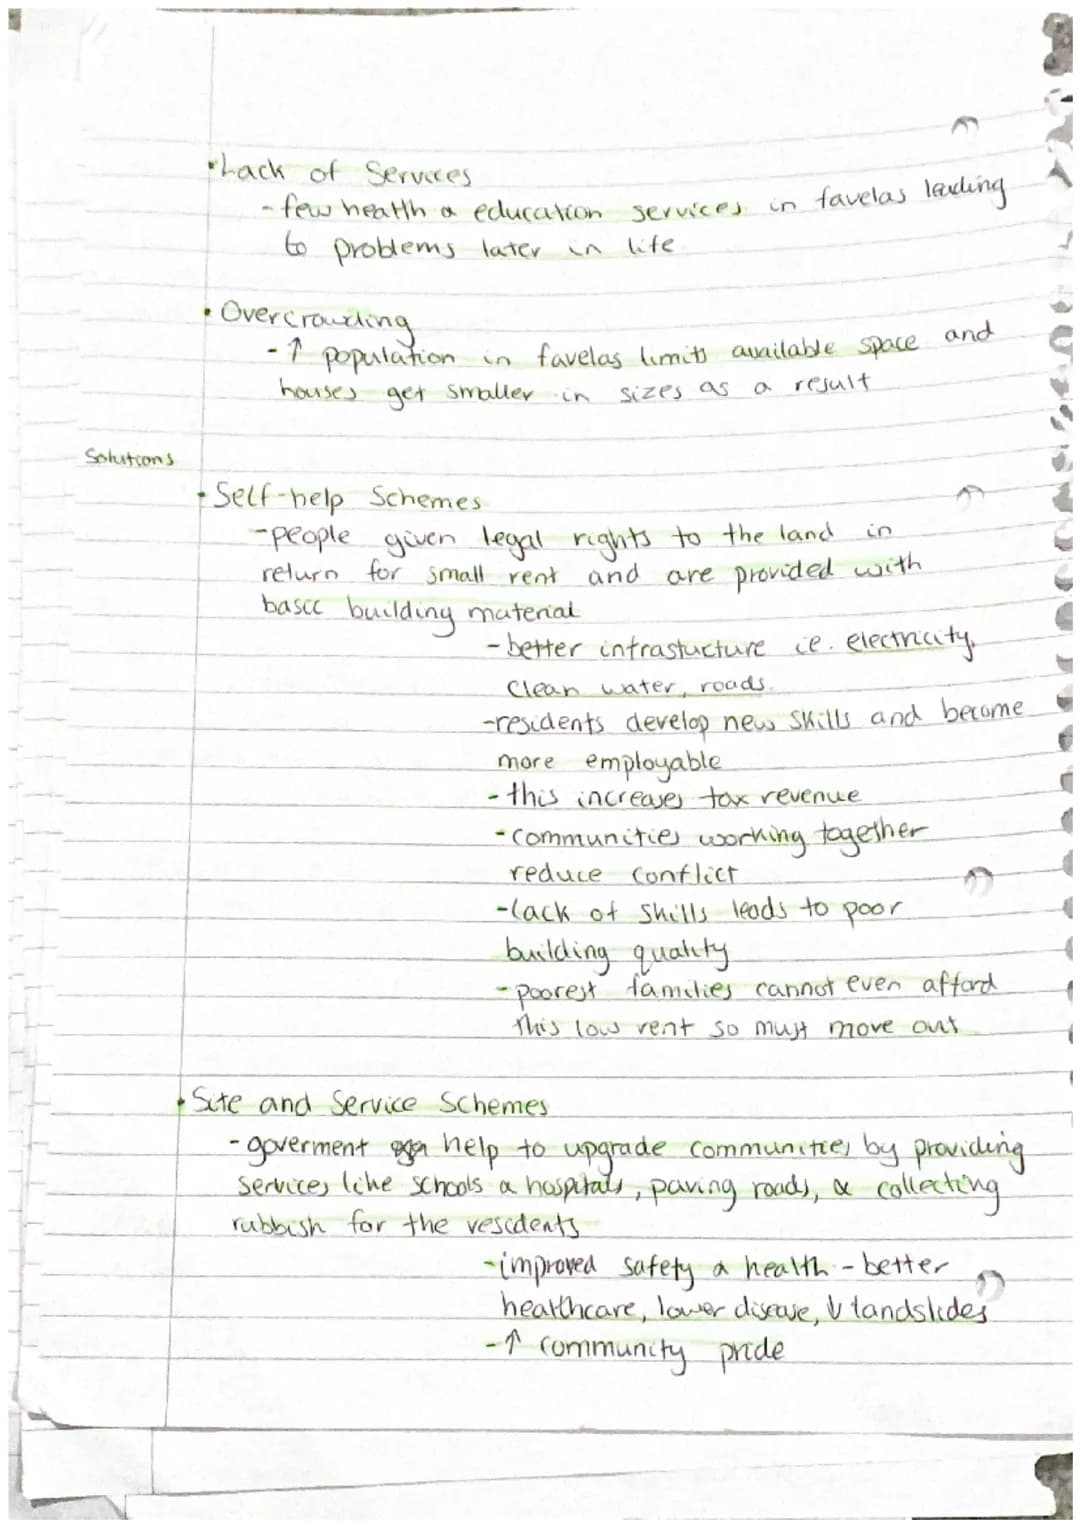 • Lack of Services
- few health & education services in favelas leading
to problems later in life
• Overcrowding
- ↑ population in favelas limits available space and
houses get smaller in sizes as a result
Solutions
• Self-help Schemes
- people given legal rights to the land in
return for small rent and are provided with
basic building material
- better infrastucture ie. electricity,
clean water, roads.
- residents develop new skills and become
more employable
- this increases tax revenue
- communities working together
reduce conflict
- lack of skills leads to poor
building quality
- poorest families cannot even afford
this low rent so must move out
• Site and Service Schemes
- goverment help to upgrade communities by providing
services like schools & hospitals, paving roads, & collecting
rubbish for the residents
- improved safety & health - better
healthcare, lower disease, ↓ landslides
- ↑ community pride